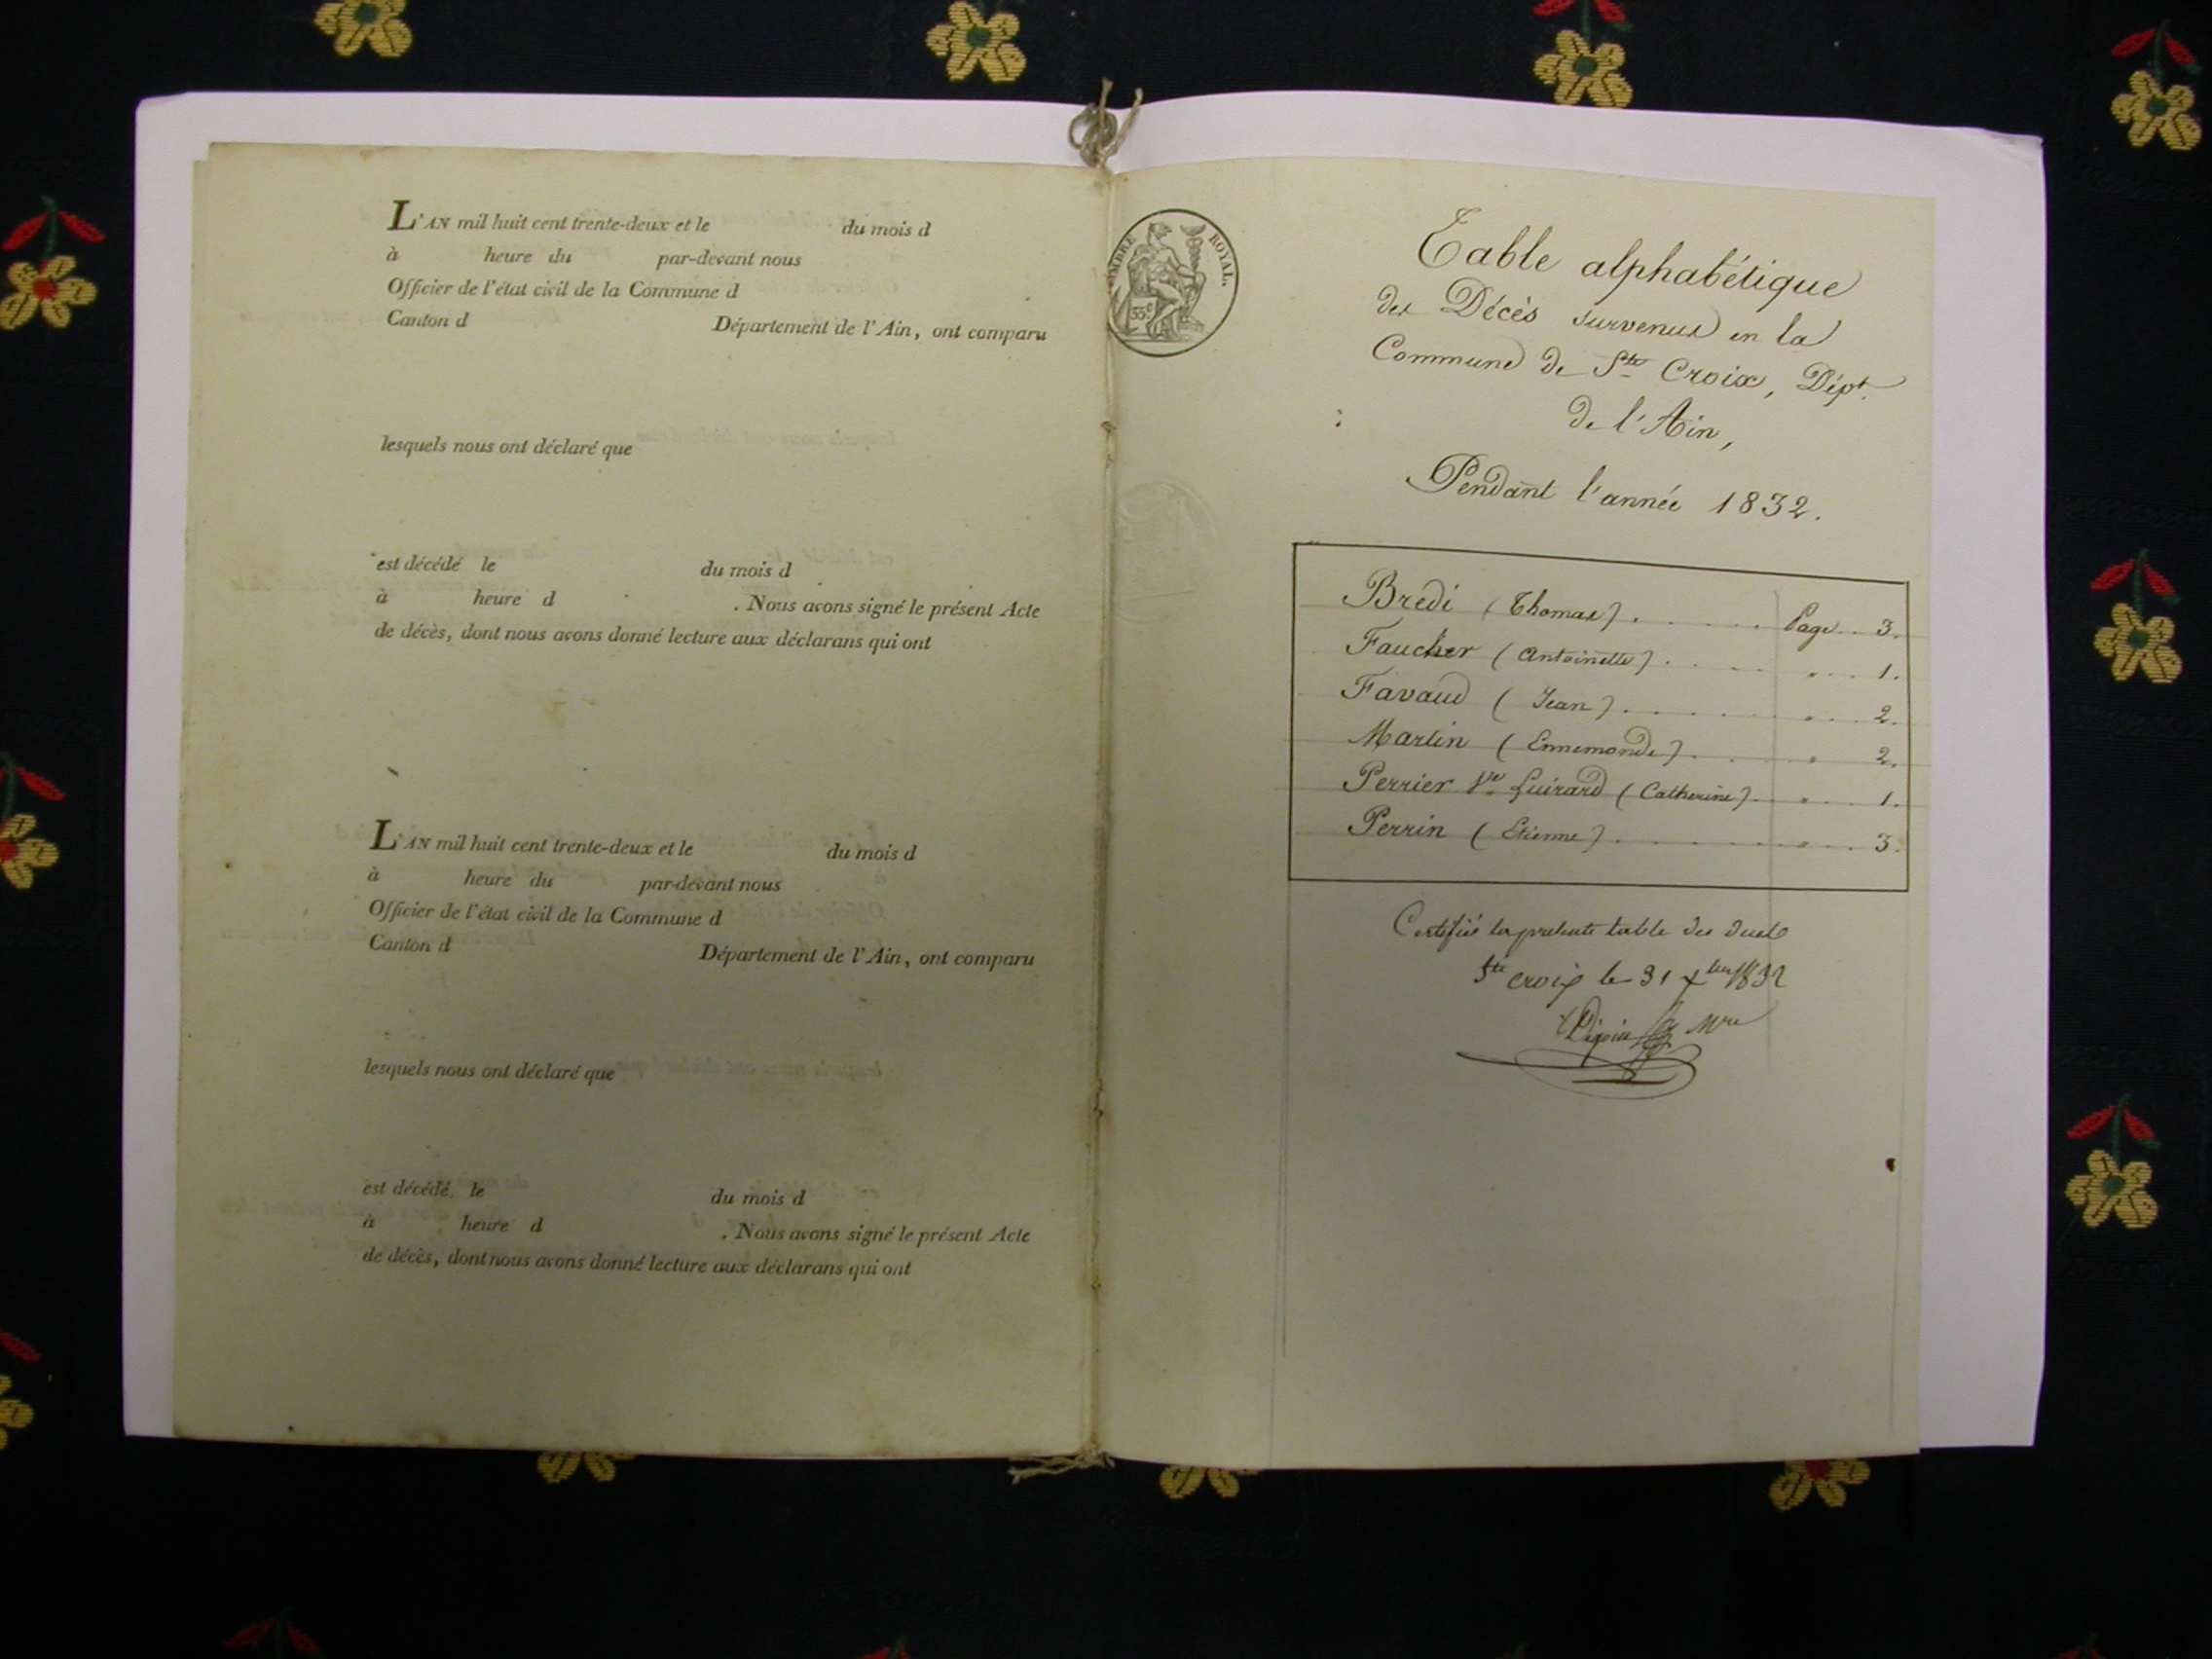 L'AN mil huit cent trente-deux et le du mois d
à heure du par-devant nous
Officier de l'état civil de la Commune d
Canton d Département de l'Ain, ont comparu
lesquels nous ont déclaré que
est décédé le du mois d
à heure d . Nous avons signé le présent Acte
de décès, dont nous avons donné lecture aux déclarans qui ont
L'AN mil huit cent trente-deux et le du mois d
à heure du par-devant nous
Officier de l'état civil de la Commune d
Canton d Département de l'Ain, ont comparu
lesquels nous ont déclaré que
est décédé le du mois d
à heure d . Nous avons signé le présent Acte
de décès, dont nous avons donné lecture aux déclarans qui ont
TIMBRE ROYAL.
35c
Table alphabétique
des Décès survenus en la
Commune de Ste Croix, Dépt.
de l'Ain,
Pendant l'année 1832.
Bredi (Thomas) . . . . . Page . . 3.
Faucher (Antoinette) . . . . . " . . . 1.
Favaud (Jean) . . . . . " . . . 2.
Martin (Ennemonde) . . . . . " 2.
Perrier Ve Guirard (Catherine) . . " . . . 1.
Perrin (Etienne) . . . . . " . . . 3.
Certifié la présente table des
Ste croix le 31 xbre 1832
Mre